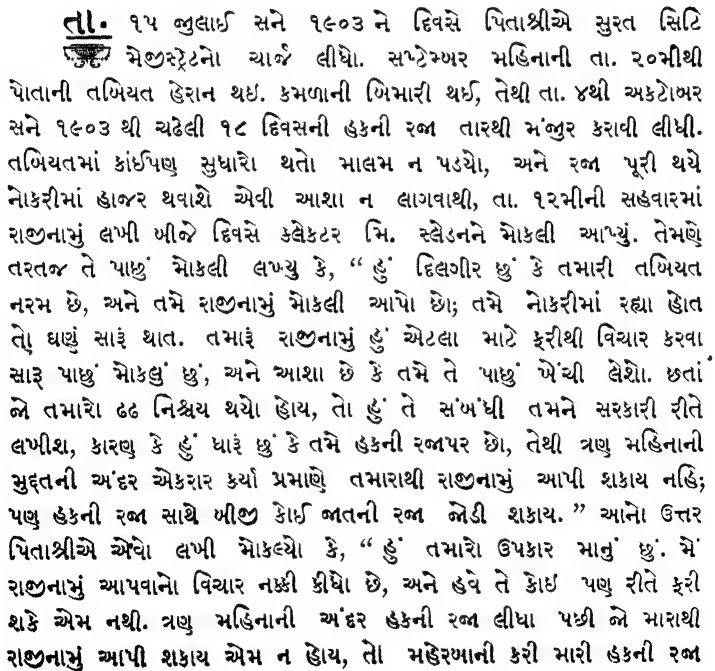 તા. ૧૫ જુલાઈ સને ૧૯૦૩ ને દિવસે પિતાશ્રીએ સુરત સિટિ
મેજીસ્ટ્રેટનો ચાર્જ લીધો. સપ્ટેમ્બર મહિનાની તા. ૨૦મીથી
પોતાની તબિયત હેરાન થઇ. કમળાની બિમારી થઈ, તેથી તા. ૪થી અકટોબર
સને ૧૯૦૩ થી ચઢેલી ૧૮ દિવસની હકની રજા તારથી મંજુર કરાવી લીધી.
તબિયતમાં કાંઈપણ સુધારો થતો માલમ ન પડયો, અને રજા પૂરી થયે
નોકરીમાં હાજર થવાશે એવી આશા ન લાગવાથી, તા. ૧૨મીની સહવારમાં
રાજીનામું લખી બીજે દિવસે ક્લેકટર મિ. સ્લેડનને મોકલી આપ્યું. તેમણે
તરતજ તે પાછું મોકલી લખ્યુ કે, “ હું દિલગીર છું કે તમારી તબિયત
નરમ છે, અને તમે રાજીનામું મોકલી આપો છો; તમે નોકરીમાં રહ્યા હોત
તો ઘણું સારૂં થાત. તમારૂં રાજીનામું હું એટલા માટે ફરીથી વિચાર કરવા
સારૂ પાછું મોકલું છું, અને આશા છે કે તમે તે પાછું ખેંચી લેશો. છતાં
જો તમારો દઢ નિશ્ચય થયો હોય, તો હું તે સંબંધી તમને સરકારી રીતે
લખીશ, કારણ કે હું ધારૂં છું કે તમે હકની રજાપર છો, તેથી ત્રણ મહિનાની
મુદ્દતની અંદર એકરાર કર્યા પ્રમાણે તમારાથી રાજીનામું આપી શકાય નહિ;
પણ હકની રજા સાથે બીજી કોઈ જાતની રજા જોડી શકાય. ” આનો ઉત્તર
પિતાશ્રીએ એવો લખી મોકલ્યો કે, “ હું તમારો ઉપકાર માનું છું. મેં
રાજીનામું આપવાનો વિચાર નક્કી કીધો છે, અને હવે તે કોઇ પણ રીતે ફરી
શકે એમ નથી. ત્રણ મહિનાની અંદર હકની રજા લીધા પછી જો મારાથી
રાજીનામું આપી શકાય એમ ન હોય, તો મહેરબાની કરી મારી હકની રજા